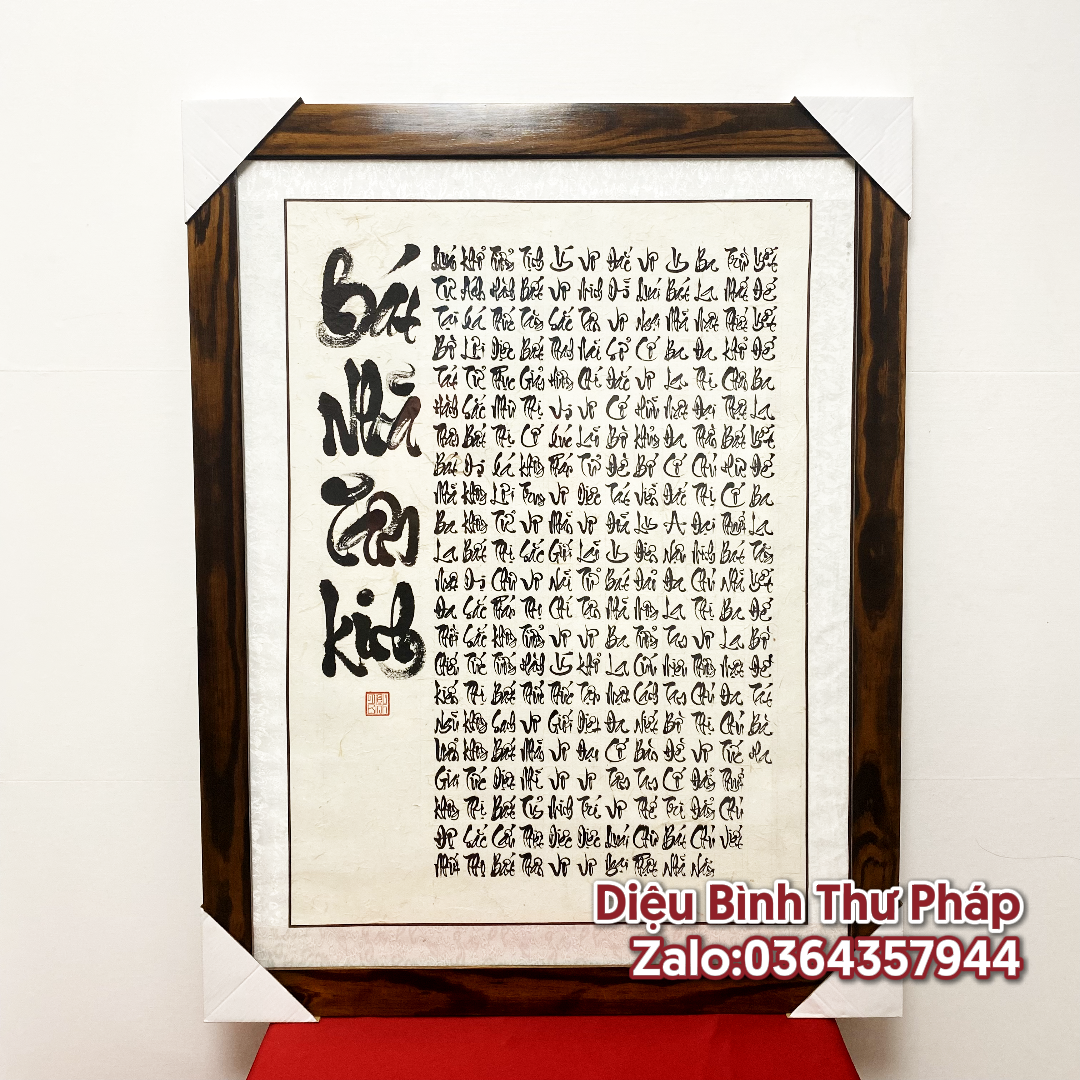 Bát
Nhã
Tâm
Kinh
Quán Tự Tại Bồ Tát Hành Thâm Bát Nhã Ba La Mật Đa Thời Chiếu Kiến Ngũ Uẩn Giai Không Độ Nhất
Khổ Ách Xá Lợi Tử Sắc Bất Dị Không Không Bất Dị Sắc Sắc Tức Thị Không Không Tức Thị Sắc Thọ
Tưởng Hành Thức Diệc Phục Như Thị Xá Lợi Tử Thị Chư Pháp Không Tướng Bất Sanh Bất Diệt Bất Cấu Bất
Tịnh Bất Tăng Bất Giảm Thị Cố Không Trung Vô Sắc Vô Thọ Tưởng Hành Thức Vô Nhãn Nhĩ Tỷ Thiệt Thân
Ý Vô Sắc Thanh Hương Vị Xúc Pháp Vô Nhãn Giới Nãi Chí Vô Ý Thức Giới Vô Vô Minh Diệc Vô
Vô Minh Tận Nãi Chí Vô Lão Tử Diệc Vô Lão Tử Tận Vô Khổ Tập Diệt Đạo Vô Trí Diệc Vô
Đắc Dĩ Vô Sở Đắc Cố Bồ Đề Tát Đỏa Y Bát Nhã Ba La Mật Đa Cố Tâm Vô Quái Ngại
Vô Quái Ngại Cố Vô Hữu Khủng Bố Viễn Ly Điên Đảo Mộng Tưởng Cứu Cánh Niết Bàn Tam Thế Chư Phật
Y Bát Nhã Ba La Mật Đa Cố Đắc A Nậu Đa La Tam Miệu Tam Bồ Đề Cố Tri Bát Nhã
Ba La Mật Đa Thị Đại Thần Chú Thị Đại Minh Chú Thị Vô Thượng Chú Thị Vô Đẳng Đẳng Chú Năng
Trừ Nhất Thiết Khổ Chân Thật Bất Hư Cố Thuyết Bát Nhã Ba La Mật Đa Chú Tức Thuyết Chú Viết
Yết Đế Yết Đế Ba La Yết Đế Ba La Tăng Yết Đế Bồ Đề Tát Bà Ha
Diệu Bình Thư Pháp
Zalo:0364357944